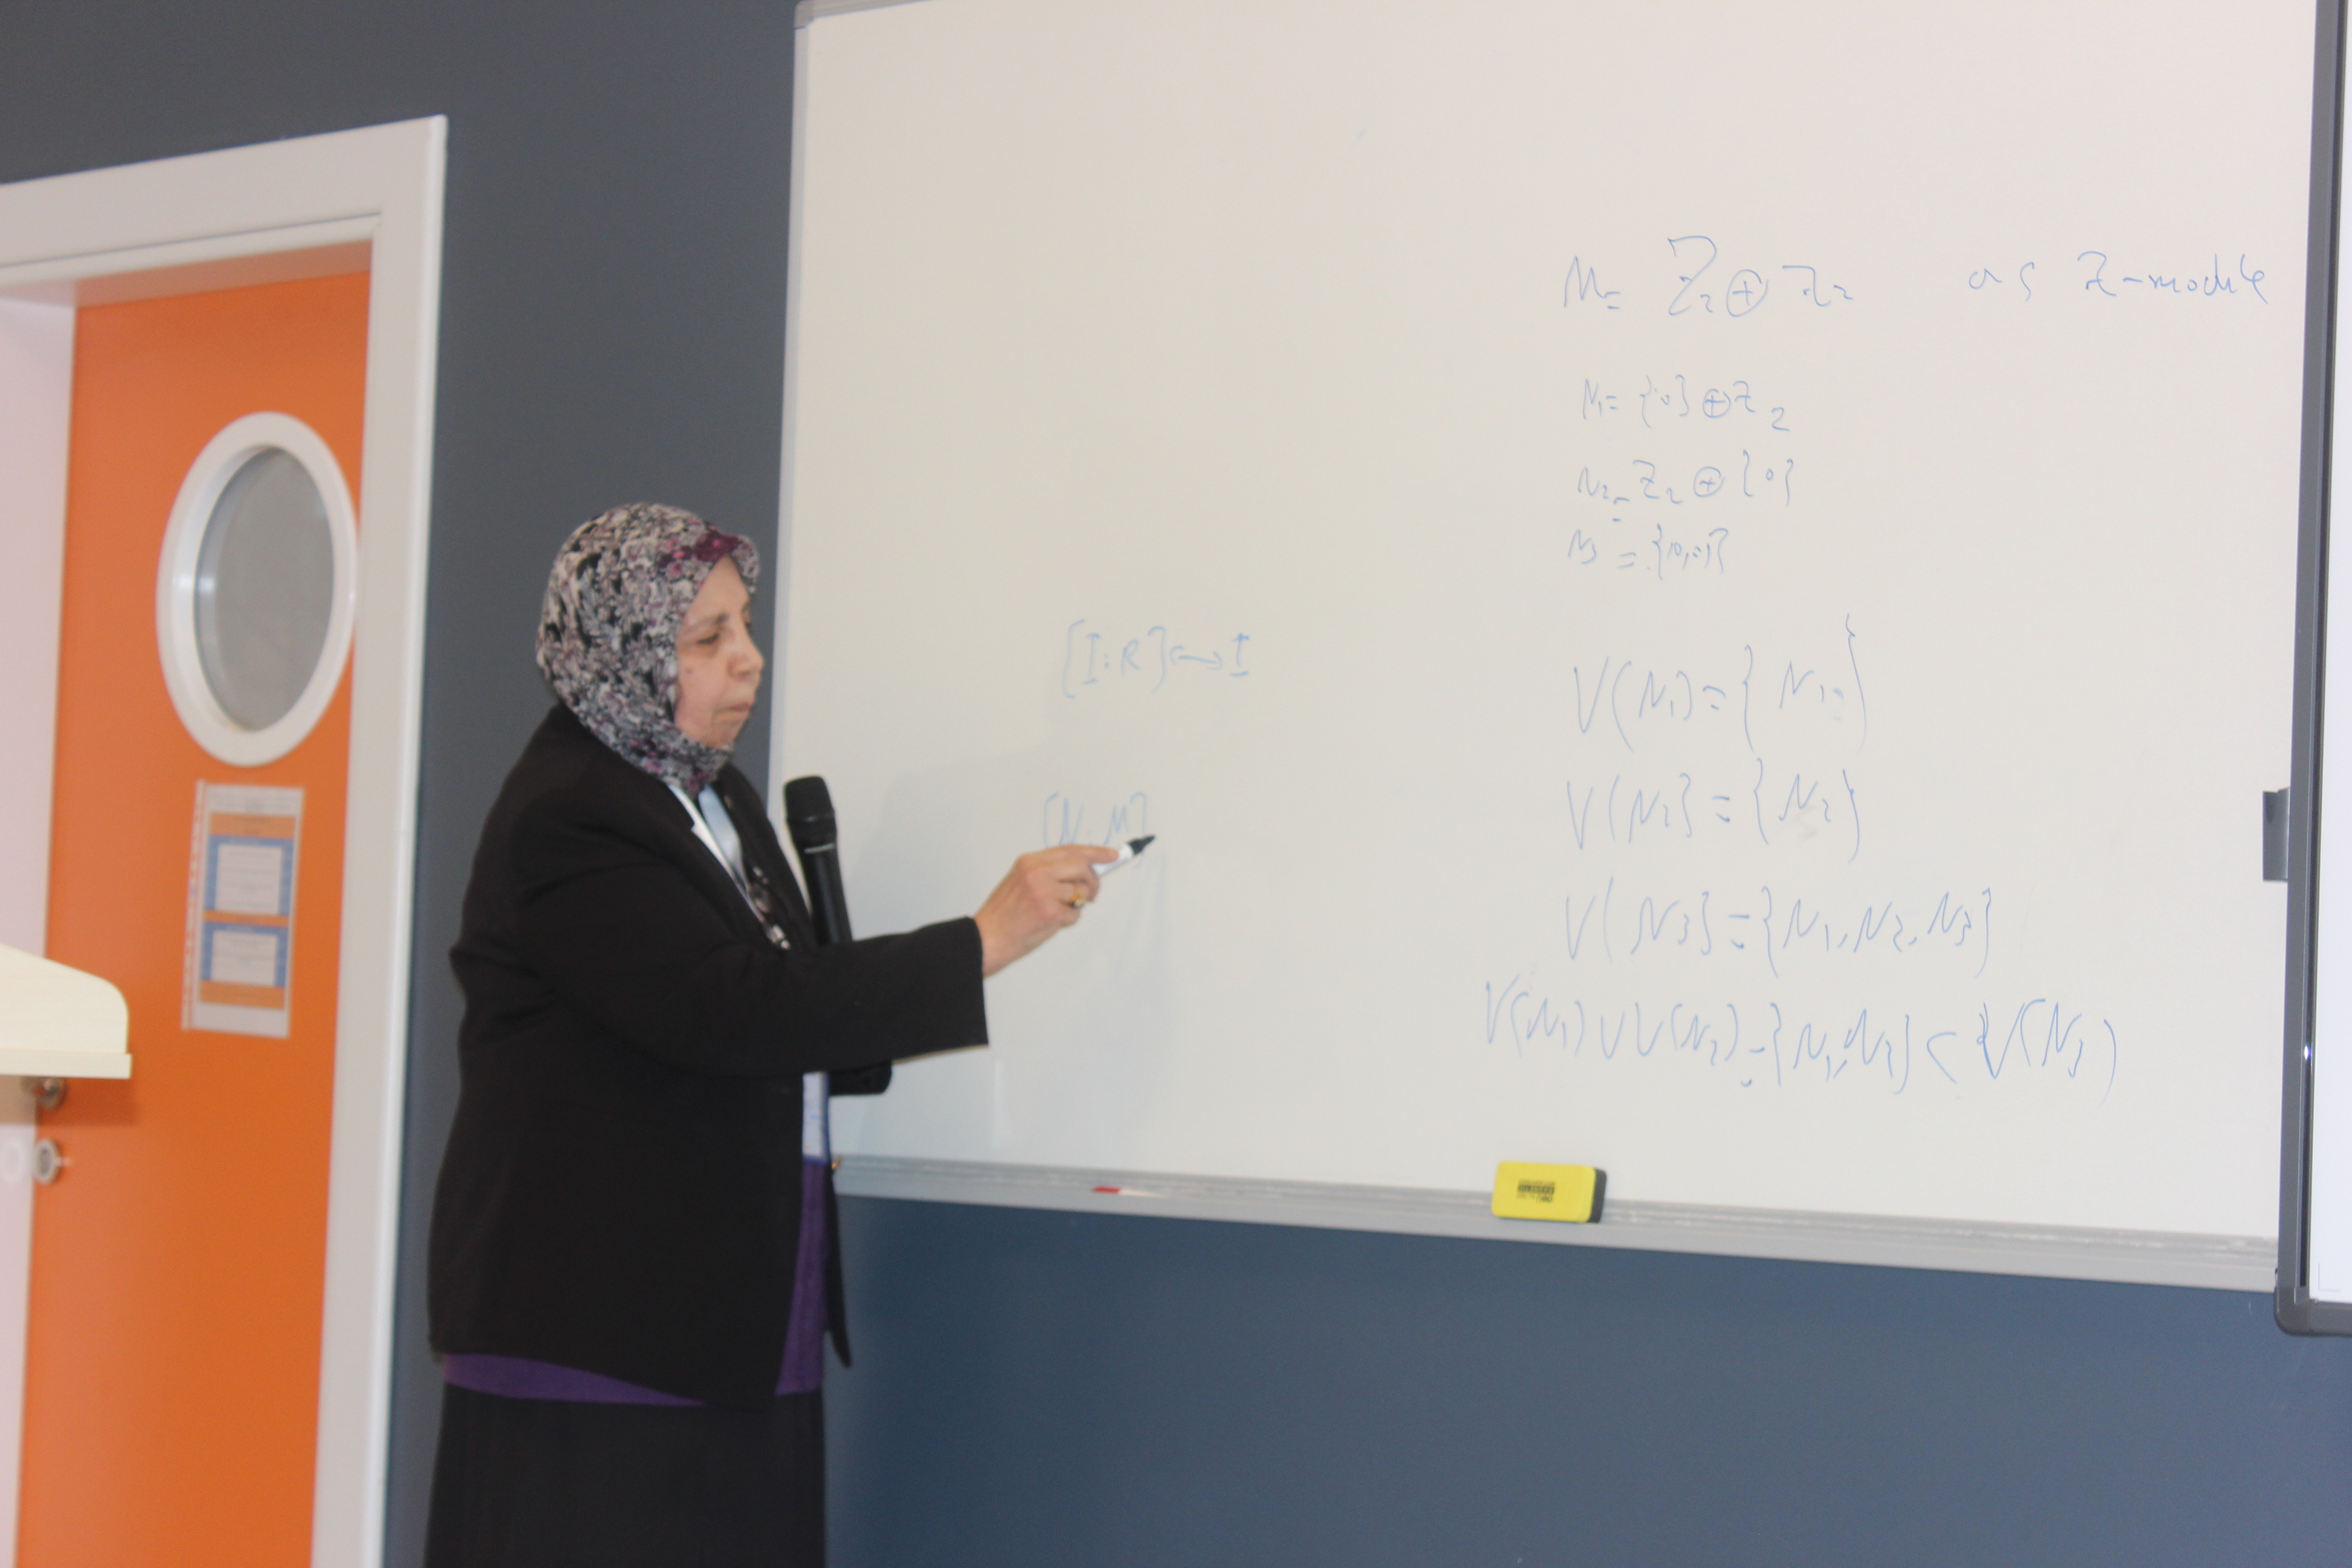 M = Z₂ ⊕ Z₂ as Z-module
N₁ = {0} ⊕ Z₂
N₂ = Z₂ ⊕ {0}
N₃ = {(0,0)}
[I:R] ↔ I
V(N₁) = {N₁}
[N:M]
V(N₂} = {N₂}
V(N₃} = {N₁, N₂, N₃}
V(N₁) ∪ V(N₂) = {N₁, N₂} ⊂ V(N₃)